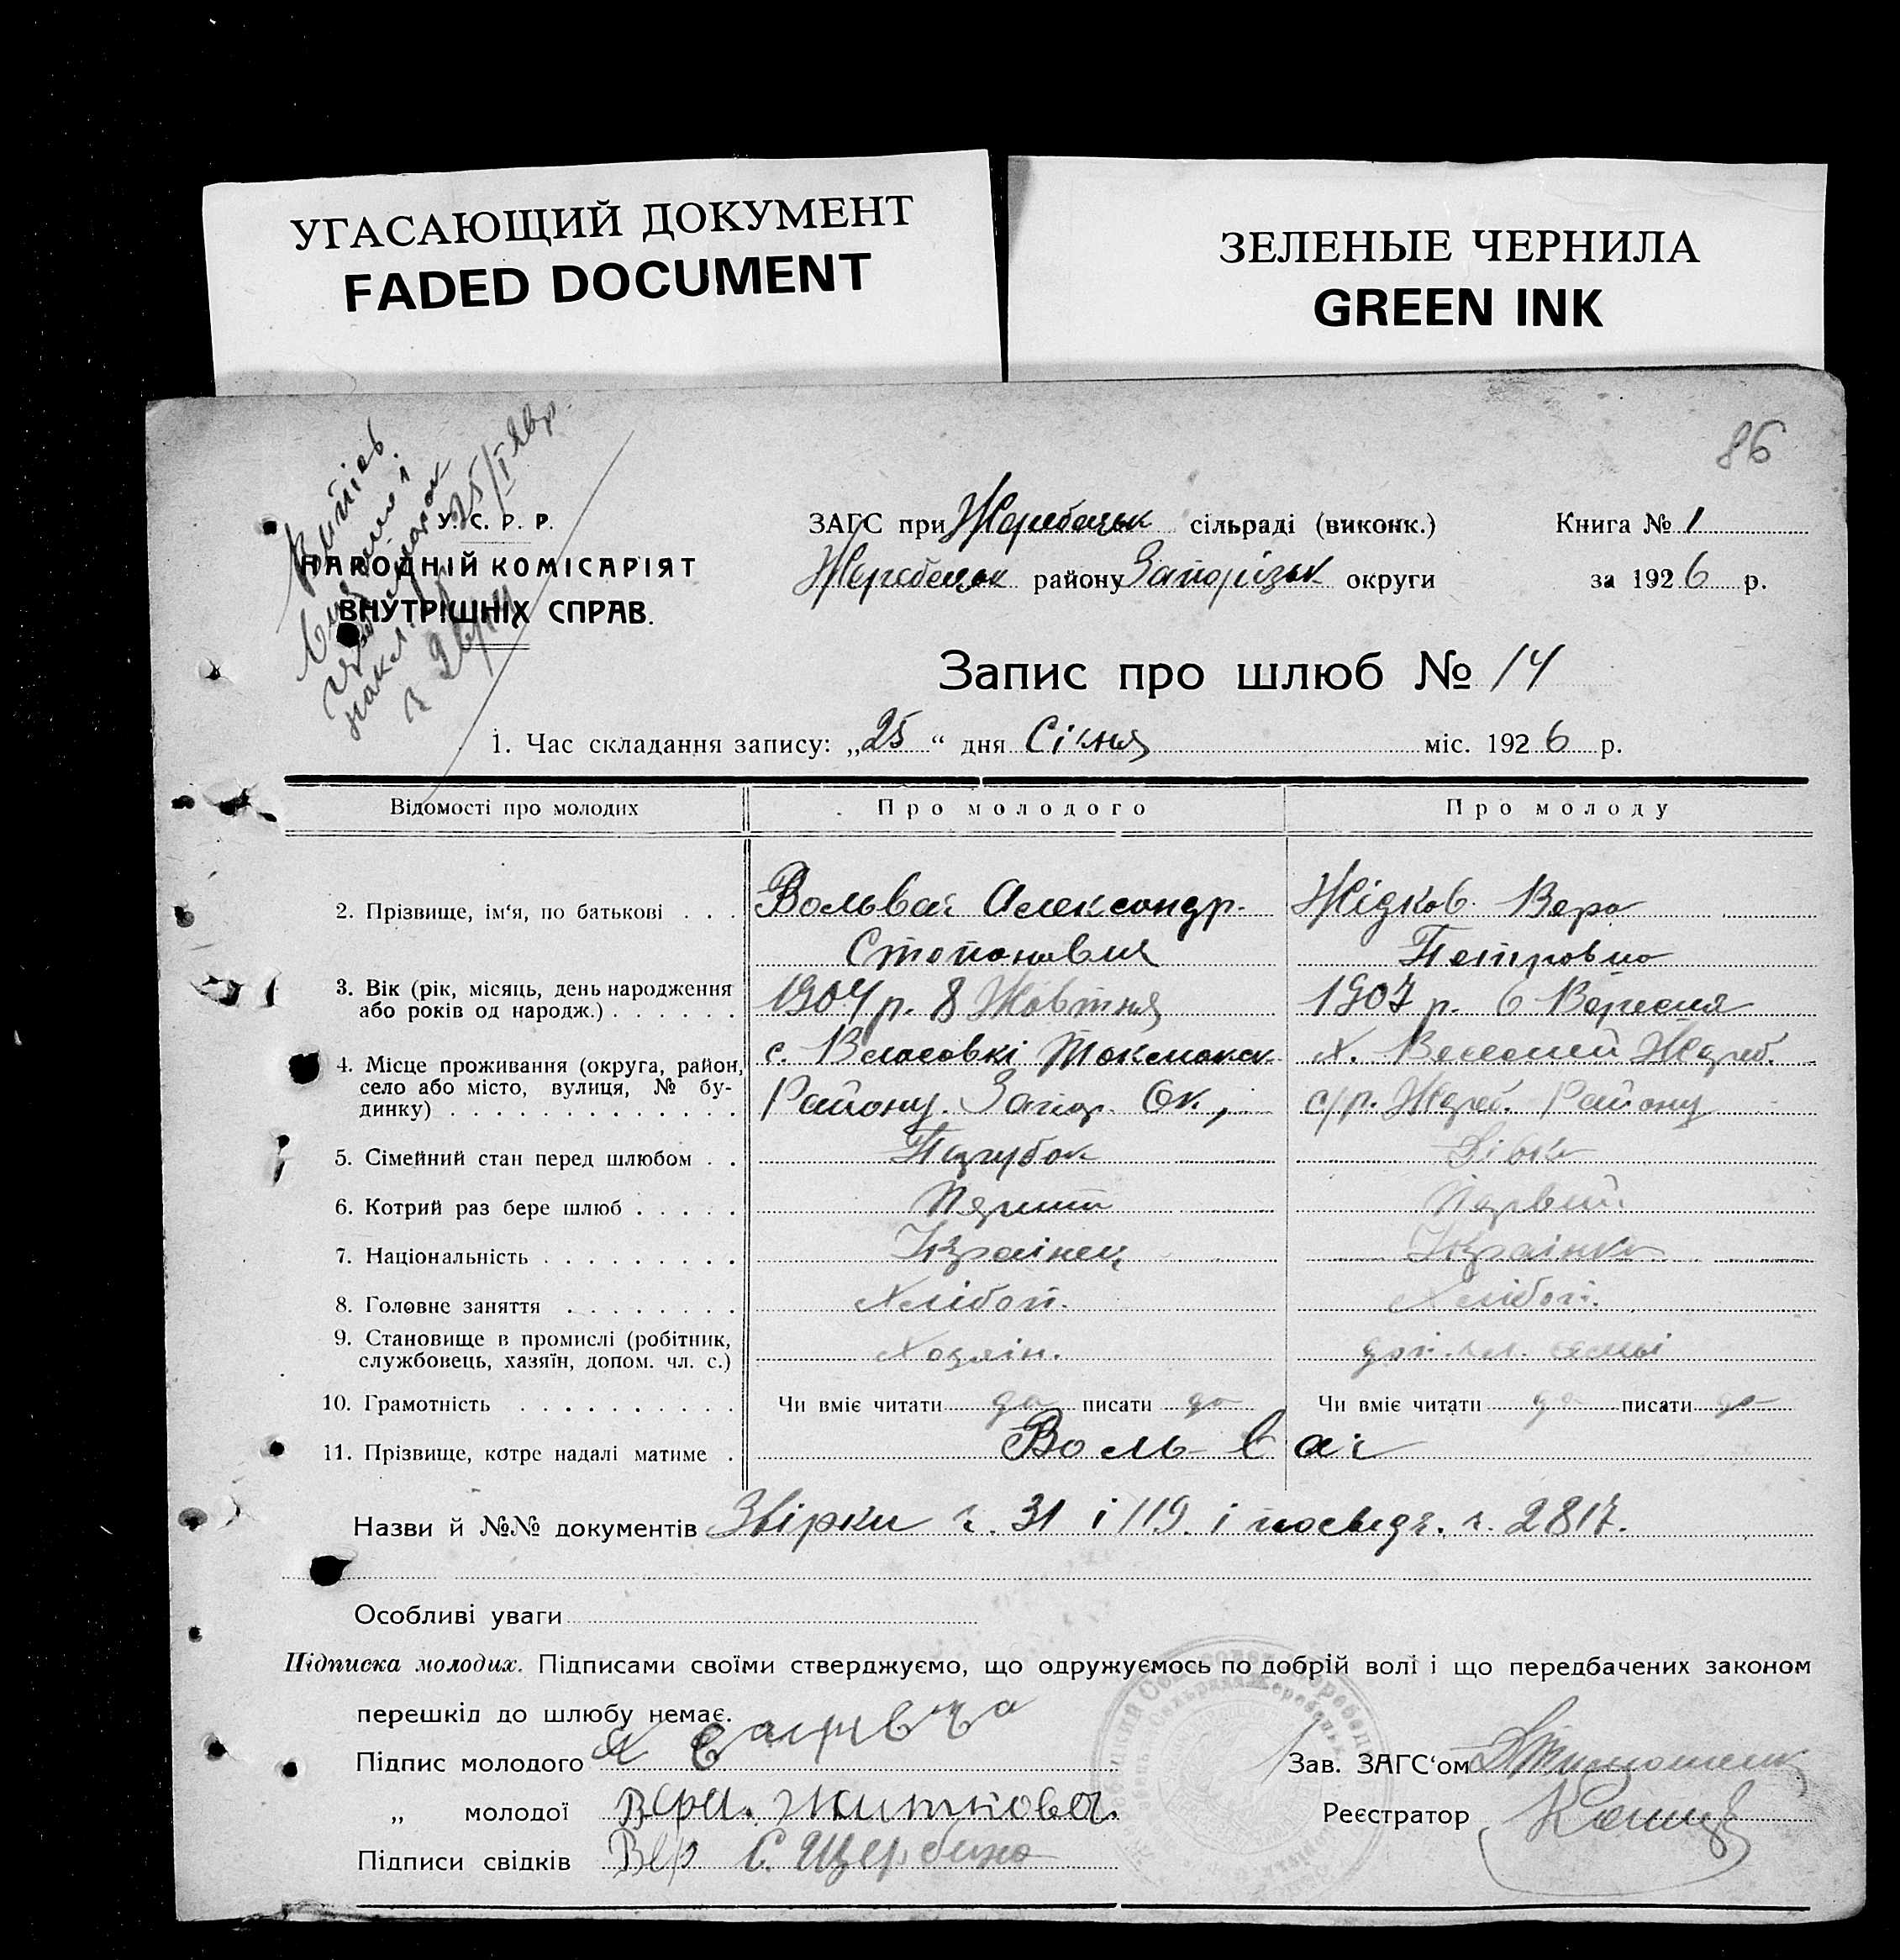 УГАСАЮЩИЙ ДОКУМЕНТ
FADED DOCUMENT
ЗЕЛЕНЫЕ ЧЕРНИЛА
GREEN INK
86
25/I 26р.
У. С. Р. Р.
НАРОДНІЙ КОМІСАРІЯТ
ВНУТРІШНІХ СПРАВ.
ЗАГС при Жеребецьк сільраді (виконк.)
Жеребецьк району Запорізьк округи
Книга № 1
за 1926 р.
Запис про шлюб № 14
1. Час складання запису: „25“ дня Січня міс. 1926 р.
Відомості про молодих Про молодого Про молоду
2. Прізвище, ім‘я, по батькові . . . Вольвач Александр Жідков. Вера
Стопанавич Петровно
3. Вік (рік, місяць, день народження 1904 р. 8 Жовтня 1907 р. 6 Вересня
або років од народж.) . . . . . .
4. Місце проживання (округа, район, с. Власовкі Токмакск х. Веселий Жереб.
село або місто, вулиця, № бу- Району. Запор. Ок., с/р. Жереб. Району
динку) . . . . . . . . . . . . .
5. Сімейний стан перед шлюбом . . Парубок Дівка
6. Котрий раз бере шлюб . . . . . Первий
7. Національність . . . . . . . . . Українец Українка
8. Головне заняття . . . . . . . . Хлібоп. Хлібоп.
9. Становище в промислі (робітник, Хозяін. доп. чл. семьі
службовець, хазяїн, допом. чл. с.)
10. Грамотність . . . . . . . . . . Чи вміє читати да писати да Чи вміє читати да писати да
11. Прізвище, котре надалі матиме . Воль-вач
Назви й №№ документів Звірки ч. 31 і 119. і посвідч. ч. 2817.
Особливі уваги
Підписка молодих. Підписами своїми стверджуємо, що одружуємось по добрій волі і що передбачених законом
перешкід до шлюбу немає.
Підпис молодого
„ молодої Вера. Житкова.
Підписи свідків С. Щербина
Зав. ЗАГС‘ом
Реєстратор